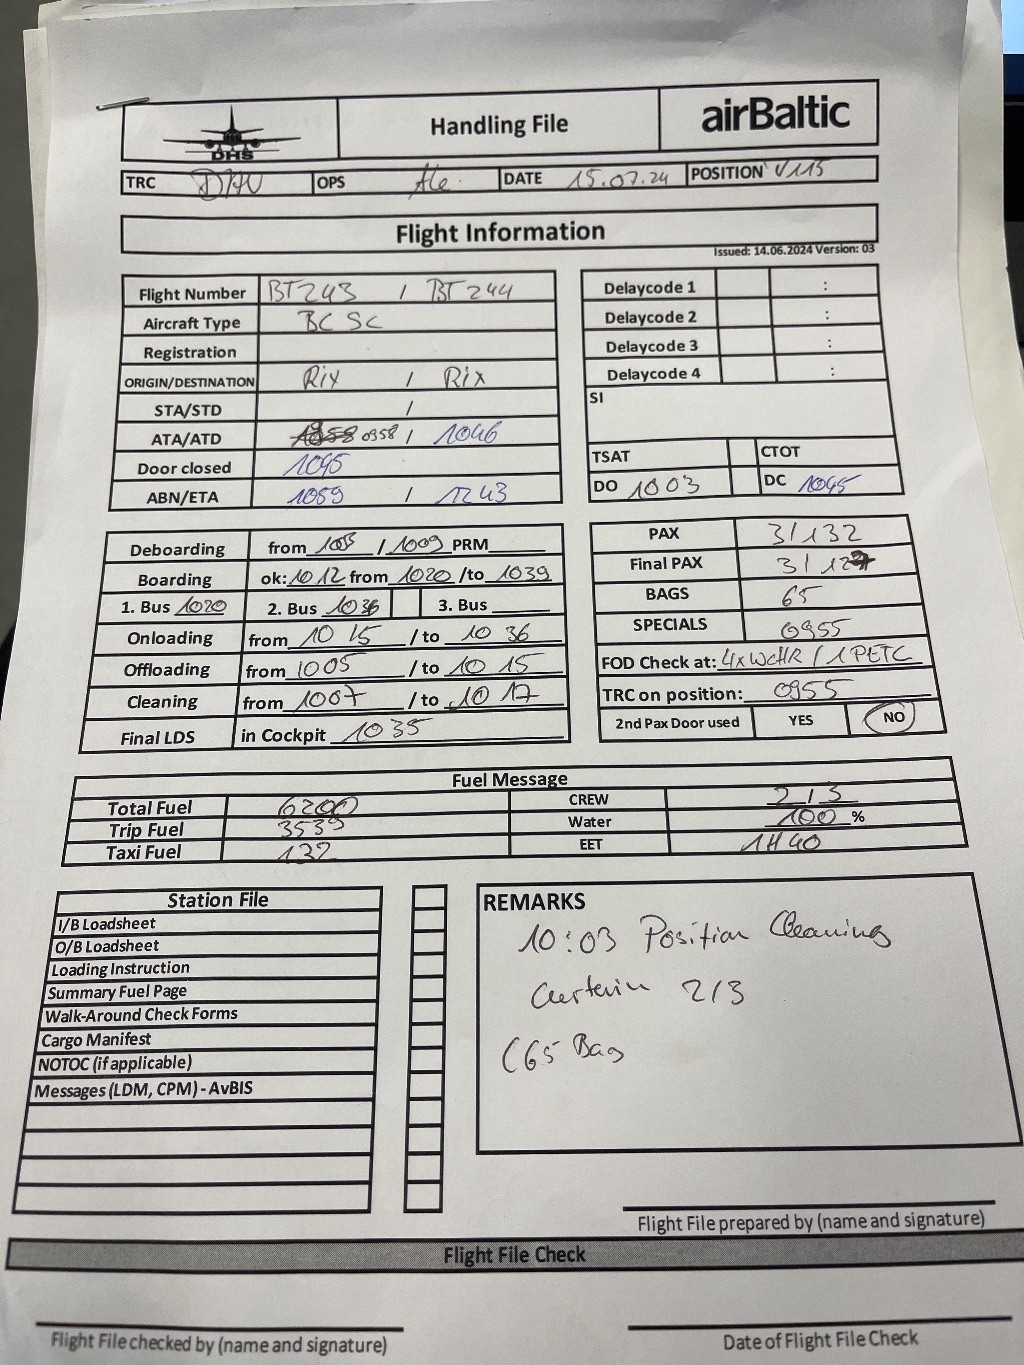 DHS
Handling File
airBaltic
TRC OPS Ale DATE 15.07.24 POSITION V115
Flight Information
Issued: 14.06.2024 Version: 03
Flight Number BT243 / BT244
Aircraft Type BCSC
Registration
ORIGIN/DESTINATION Rix / Rix
STA/STD /
ATA/ATD 0958 / 1046
Door closed 1045
ABN/ETA 1059 / 1243
Delaycode 1 :
Delaycode 2 :
Delaycode 3 :
Delaycode 4 :
SI
TSAT CTOT
DO 1003 DC 1045
Deboarding from 1005 / 1009 PRM
Boarding ok: 1012 from 1020 /to 1039
1. Bus 1020 2. Bus 1036 3. Bus
Onloading from 1015 / to 1036
Offloading from 1005 / to 1015
Cleaning from 1007 / to 1017
Final LDS in Cockpit 1035
PAX 3/132
Final PAX 3/
BAGS 65
SPECIALS 0955
FOD Check at: 4xWCHR / 1PETC
TRC on position: 0955
2nd Pax Door used YES NO
Fuel Message
Total Fuel 6200 CREW 2/3
Trip Fuel 3539 Water 100 %
Taxi Fuel 132 EET 1H40
Station File
I/B Loadsheet
O/B Loadsheet
Loading Instruction
Summary Fuel Page
Walk-Around Check Forms
Cargo Manifest
NOTOC (if applicable)
Messages (LDM, CPM) - AvBIS
REMARKS
10:03 Position Cleaning
2/3
65 Bag
Flight File prepared by (name and signature)
Flight File Check
Flight File checked by (name and signature)
Date of Flight File Check